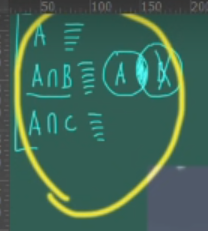 50 100 150 200
A
A∩B A B
A∩C